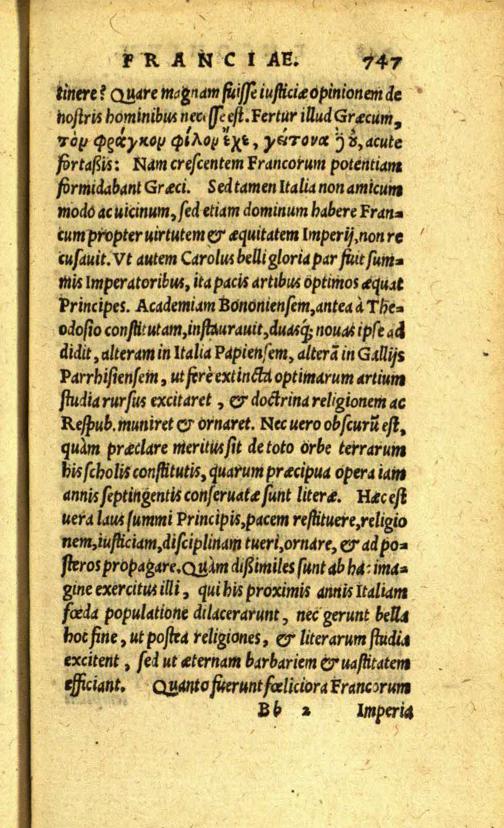 FRANCIAE. 747
tinere? Quare magnam fuisse iusticiæ opinionem de
nostris hominibus necesse est. Fertur illud Græcum,
τὸν φράγκον φίλον ἔχε, γείτονα
acute
fortaßis: Nam crescentem Francorum potentiam
formidabant Græci. Sed tamen Italia non amicum
modo ac uicinum, sed etiam dominum habere Fran=
cum propter uirtutem & æquitatem Imperij, non re
cusauit. Vt autem Carolus belli gloria par fuit sum=
mis Imperatoribus, ita pacis artibus optimos æquat
Principes. Academiam Bononiensem, antea à The=
odosio constitutam, instaurauit, duasq; nouas ipse ad
didit, alteram in Italia Papiensem, alterã in Gallijs
Parrhisiensem, ut ferè extincta optimarum artium
studia rursus excitaret, & doctrina religionem ac
Respub. muniret & ornaret. Nec uero obscurũ est,
quàm præclare meritus sit de toto orbe terrarum
his scholis constitutis, quarum præcipua opera iam
annis septingentis conseruatæ sunt literæ. Hæc est
uera laus summi Principis, pacem restituere, religio
nem, iusticiam, disciplinam tueri, ornare, & ad po=
steros propagare. Quàm dißimiles sunt ab hac ima=
gine exercitus illi, qui his proximis annis Italiam
fœda populatione dilacerarunt, nec gerunt bella
hoc fine, ut postea religiones, & literarum studia
excitent, sed ut æternam barbariem & uastitatem
efficiant. Quanto fuerunt fœliciora Francorum
Bb 2 Imperia